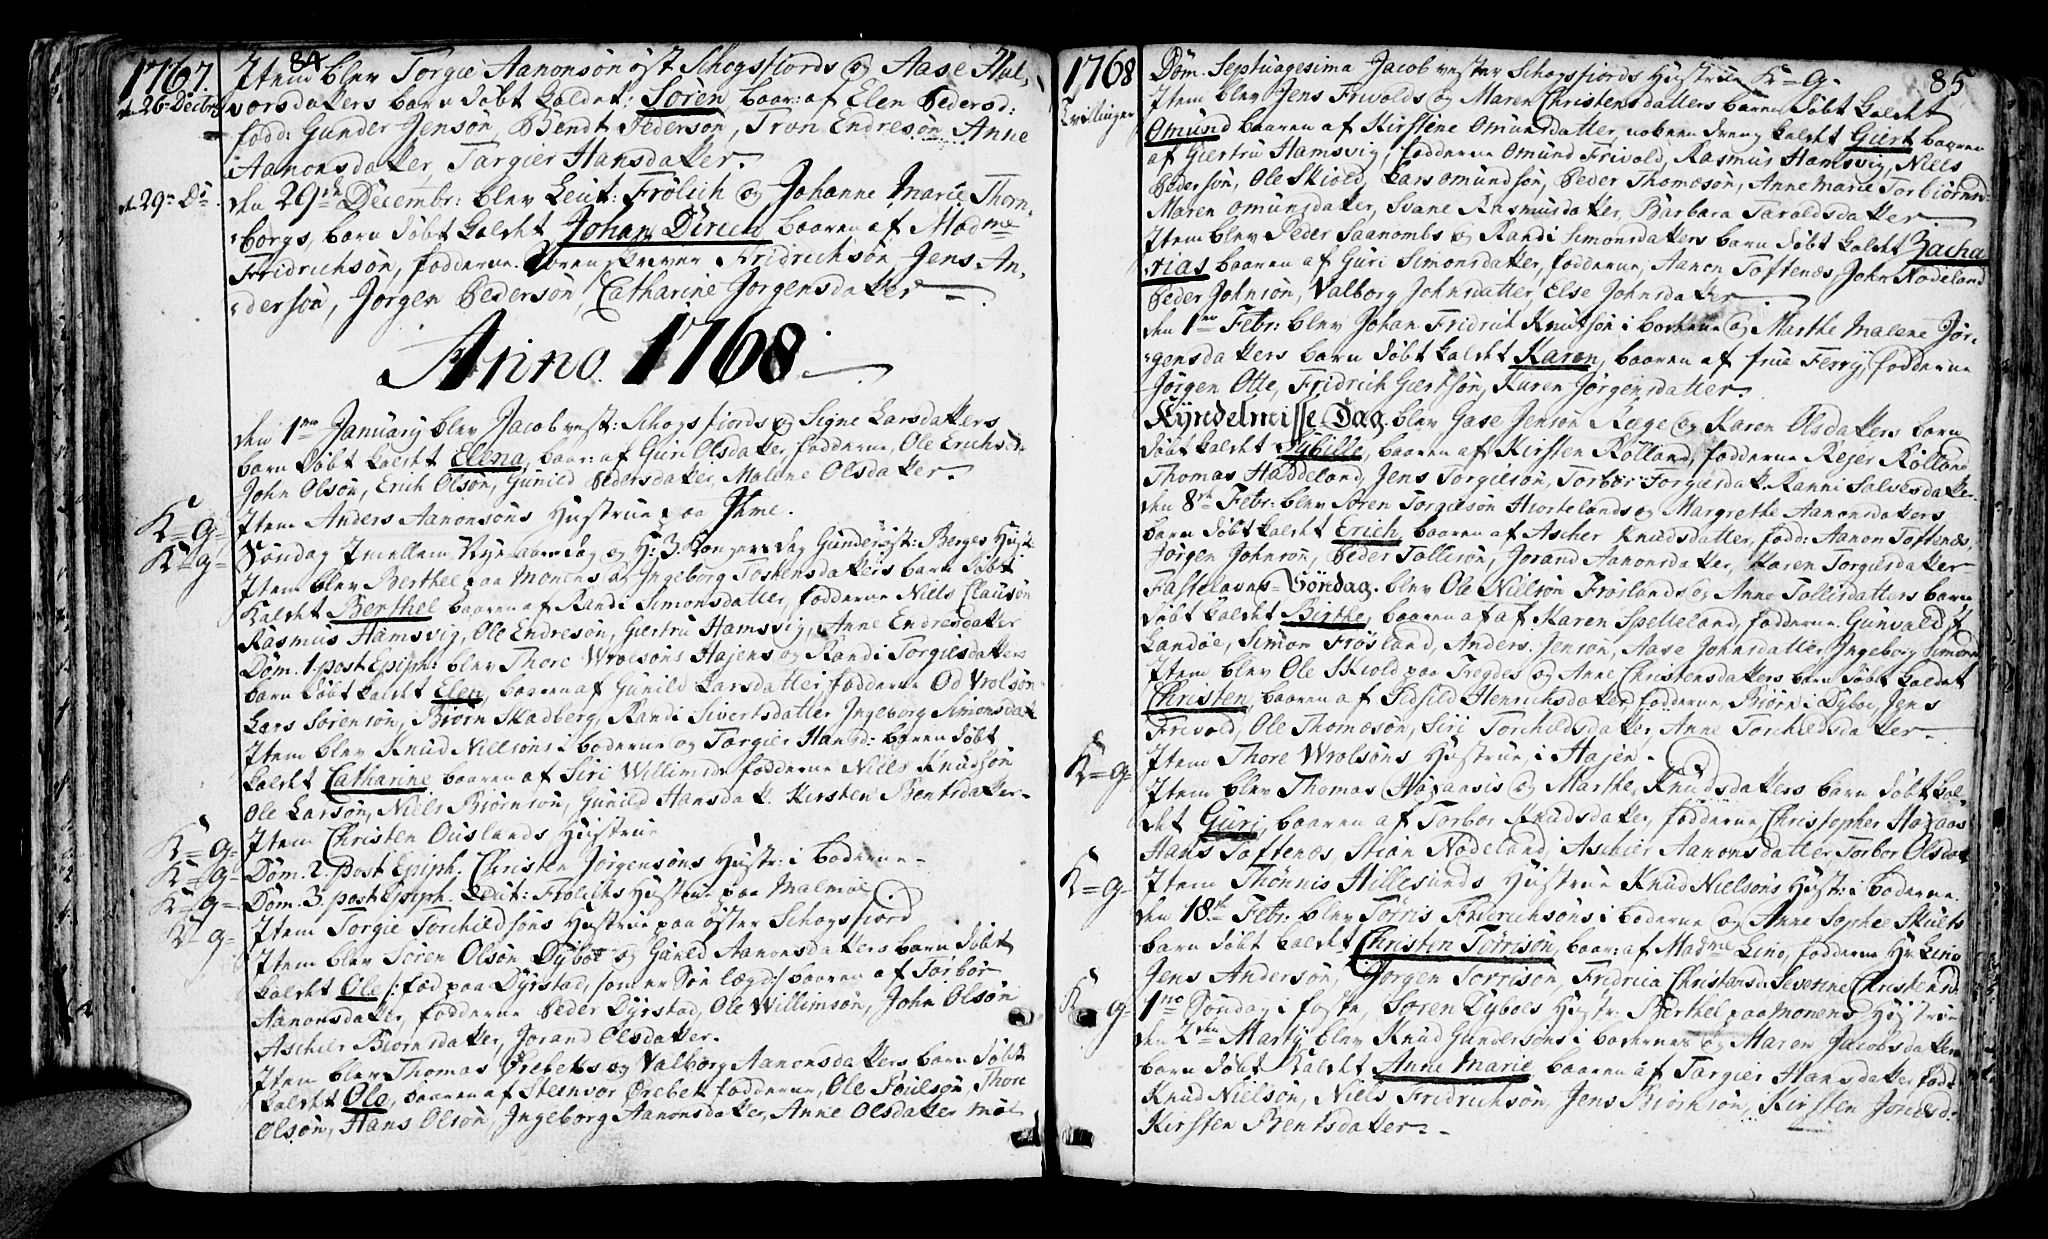 1767. 84
Item blev Torgie Aanonsøn øst Schogsfiords og Aase Hal-
d. 26 Decbr. vorsdatters barn døbt kaldet Søren baar: af Elen Pedersd:
fodd: Gunder Jensøn, Bendt Pedersøn, Tron Endresøn Anne
Aanonsdatter, Targier Hansdatter.
d. 29 Do. den 29de Decembr: blev Leut: Frølich og Johanne Marie Thorn-
borgs, barn døbt kaldet Johan Dirich baaren af Madme
Fridrichsøn, fodderne Fridrichsøn Jens An-
dersøn, Jørgen Pedersøn, Catharine Jørgensdatter
Anno 1768
den 1mo January blev Jacob vest: Schogsfiords og Signe Larsdatters
barn døbt kaldet Elena, baar: af Guri Olsdatter, fodderne, Ole Erichs
John Olsøn, Erich Olsøn, Gunild Pedersdatter, Malene Olsdatter.
K=g= Item Anders Aanonsøns Hustrue paa Ihme.
K=g= Søndag Imellem Nye aars dag og H: 3 Konger dag Gunder øst: Berges Hust
Item blev Berthel paa Monens og Ingeborg Tostensdatters barn døbt
kaldet Berthel baaren af Randi Simonsdatter, fodderne Niels Clausøn
Rasmus Hamsvig, Ole Endresøn, Giertru Hamsvig, Anne Endresdatter
Dom. 1 post Epiph: blev Thore Wrolsøns Hajens og Randi Torgiesdatters
barn døbt kaldet Elen, baaren af Gunild Larsdatter, fodderne Od Wrolsøn
Lars Sørensøn, Biørn Skadberg, Randi Sivertsdatter Ingeborg Simonsdatt
Item blev Knud Nielsøns i boderne og Targier Hansd: barn døbt
kaldet Catharine, baaren af Siri Willimsd: fodderne Niels Knudsøn
Ole Larsøn, Niels Biørnsøn, Gunild Hansdat. Kirsten Bentsdatter
K=g= Item Christen Ouslands Hustrue
K=g= Dom. 2. post Epiph. Christen Jørgensøns Hustr: i boderne
K=g= Dom. 3. post Epiph. Leut: Frolichs Hustrue paa Malmøe
K=g= Item Torgie Torchildsøns Hustrue paa øster Schogsfiord
Item blev Søren Olsøn Dyboe og Gunild Aanonsdatters barn døbt
kaldet Ole /: fød paa Dyrstad, som er Søn lægd :/ baaren af Torbor
Aanonsdatter, fodderne Peder Dyrstad, Ole Willimsøn, John Olsøn
Aschier Biørnsdatter, Jorand Olsdatter.
Item blev Thomas Ørebeks og Valborg Aanonsdatters barn døbt
kaldet Ole, baaren af Steenvor Ørebek fodderne, Ole Poulsøn, Thore
Olsøn, Hans Olsøn, Ingeborg Aanonsdatter, Anne Olsdatter
1768 85
Dom. Septuagesima Jacob vester Schogsfiords Hustrue K=g=
Tvillinger Item blev Jens Frivolds og Maren Christensdatters barn døbt kaldet
Omund baaren af Kirstine Omundsdatter, nok en dreng kaldet Giert baaren
af Giertru Hamsvig, fodderne Omund Frivold, Rasmus Hamsvig, Niels
Pedersøn, Ole Skiold, Lars Omundsøn, Peder Thomæsøn, Anne Marie Torbiørnsd:
Maren Omunsdatter, Svane Rasmusdatter, Barbara Taraldsdatter
Item blev Peder Saanombs og Randi Simonsdatters barn døbt kaldet Zacha
rias baaren af Guri Simonsdatter, fodderne, Aanon Toftenæs, John Nodeland
Peder Johnsøn, Valborg Johnsdatter, Else Johnsdatter
den 1mo Febr: blev Johan Fridrich Knutsøn i boderne og Marthe Malene Jør-
gensdatters barn døbt kaldet Karen, baaren af frue Ferry, fodderne
Jørgen Otte, Fridrich Giertsøn, Karen Jørgensdatter.
Kyndelmisse Dag blev Gase Jensøn Ræge og Karen Olsdatters barn
døbt kaldet Sybille, baaren af Kirsten Rølland, fodderne Rejer Rølland
Thomas Haddeland, Jens Torgiesøn, Torbor Torgiesdat. Ranni Salvesdatter
den 8de Febr: blev Søren Torgiesøn Hiortelands og Margrethe Aanonsdatters
barn døbt kaldet Erich, baaren af Aschier Knudsdatter, fodd: Aanon Toftenæs,
Jørgen Johnsøn, Peder Tollisøn, Jorand Aanonsdatter, Karen Torgiesdatter
Fastelavns Søndag. blev Ole Nielsøn Frøslands og Anne Tollisdatters barn
døbt kaldet Birthe, baaren af af Karen Spetteland, fodderne Gunvald
Landøe, Simon Frøsland, Anders Jensøn, Aase Johnsdatter Ingeborg Simonsd
Item blev Ole Skiold paa Tregdes og Anne Christensdatters barn døbt kaldet
Christen, baaren af Idsild Henrichsdatter, fodderne, Biørn i Dyboe, Jens
Frivold, Ole Thomæsøn, Siri Torchildsdatter, Anne Torchildsdatter
K=g= Item Thore Wrolsøns Hustrue, i Hajen
Item blev Thomas Høyaasis og Marthe Knudsdatters barn døbt kal-
det Guri, baaren af Torbor Knudsdatter, fodderne Christopher Høyaas
Hans Toftenæs, Stian Nodeland, Aschier Aanonsdatter Torbor Olsdatt
K=g= Item Thønnis Hillesunds Hustrue Knud Nielsøns Hustr: i boderne
den 18de Febr: blev Tørris Fridrichsøns i boderne og Anne Sophie Skults
barn døbt kaldet Christen Tørrisøn, baar: af Madme Lind, fodderne Hr: Lind
Jens Andersøn, Jørgen Torrisøn, Fridrica Christensd: Severine Christensd.
K=g= 1mo Søndag i faste, Søren Dyboes Hustr: Berthel paa Monens Hustrue
den 2den Marty blev Knud Gundersøns i boderne og Maren Jacobsdatters
barn døbt kaldet Anne Marie, baaren af Targier Hansdatter, fodd:
Knud Nielsøn, Niels Fridrichsøn, Jens Biørnsøn, Kirsten Jonesd:
Kirsten Bentsdatter.